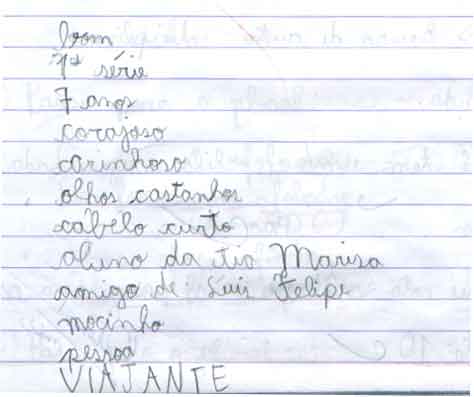 bom
1ª série
7 anos
corajoso
carinhoso
olhos castanhos
cabelo curto
aluno da tia Marisa
amigo de Luis Felipe
mocinho
pessoa
VIAJANTE